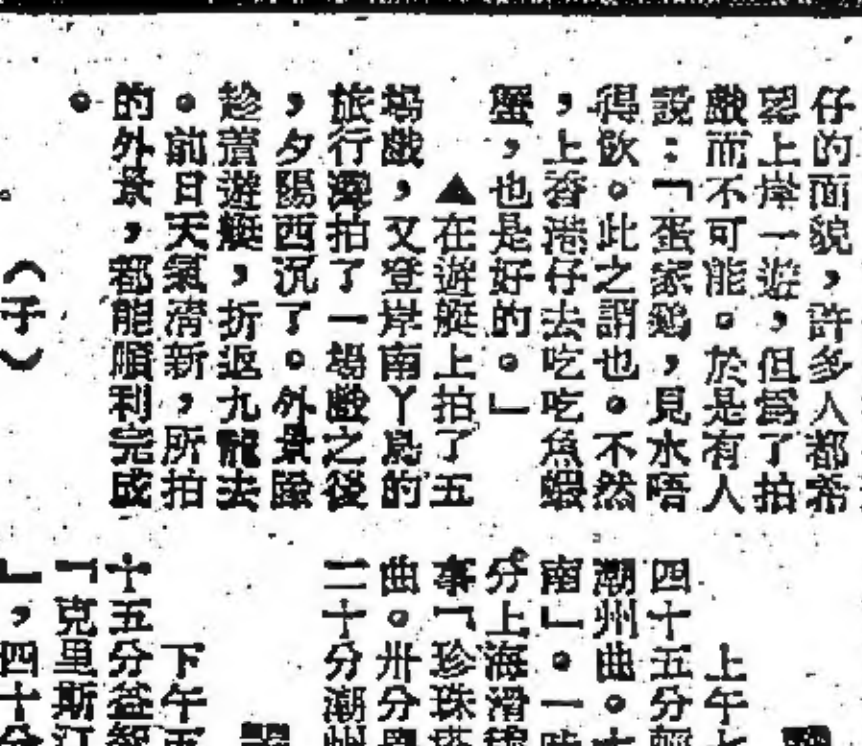 仔的面貌，許多人都希
望上岸一遊，但爲了拍
戲而不可能。於是有人
說：「蛋家鷄，見水唔
得飲。此之謂也。不然
，上香港仔去吃吃魚蝦
蟹，也是好的。」
▲在遊艇上拍了五
場戲，又登岸南丫島的
旅行灣拍了一場戲之後
，夕陽西沉了。外景隊
趁着遊艇，折返九龍去
。前日天氣清新，所拍
的外景，都能順利完成
。
。（子）
上午
四十五分
潮州曲。
南」。一
分上海滑
事「珍珠塔
曲。卅分
二十分潮州
下午
十五分益智
「克里斯
」，四十分